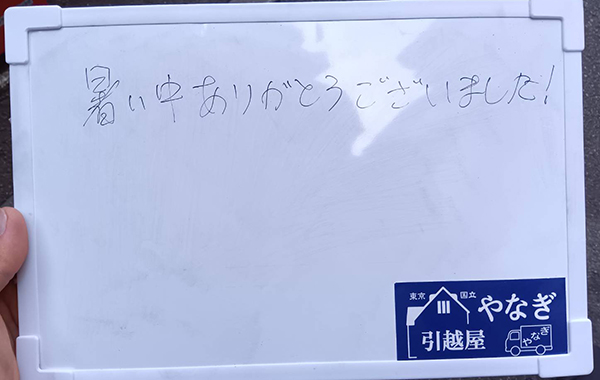 暑い中ありがとうございました!
東京 国立 やなぎ
引越屋
やなぎ